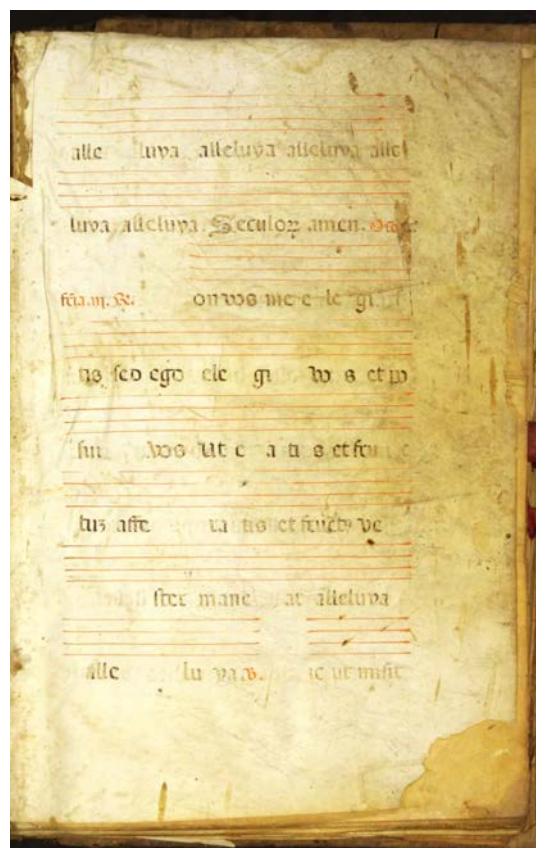 alle luya alleluya alleluya allel
luya alleluya. Seculoꝝ amen.
feria .iij. ℟. on vos me e le gi s
tis sed ego ele gi vo s et po
sui vos Ut e a ti s et fru c
tuꝫ affe ra tis et fructꝰ ve
ster mane at alleluya
alle lu ya ℣. ic ut misit